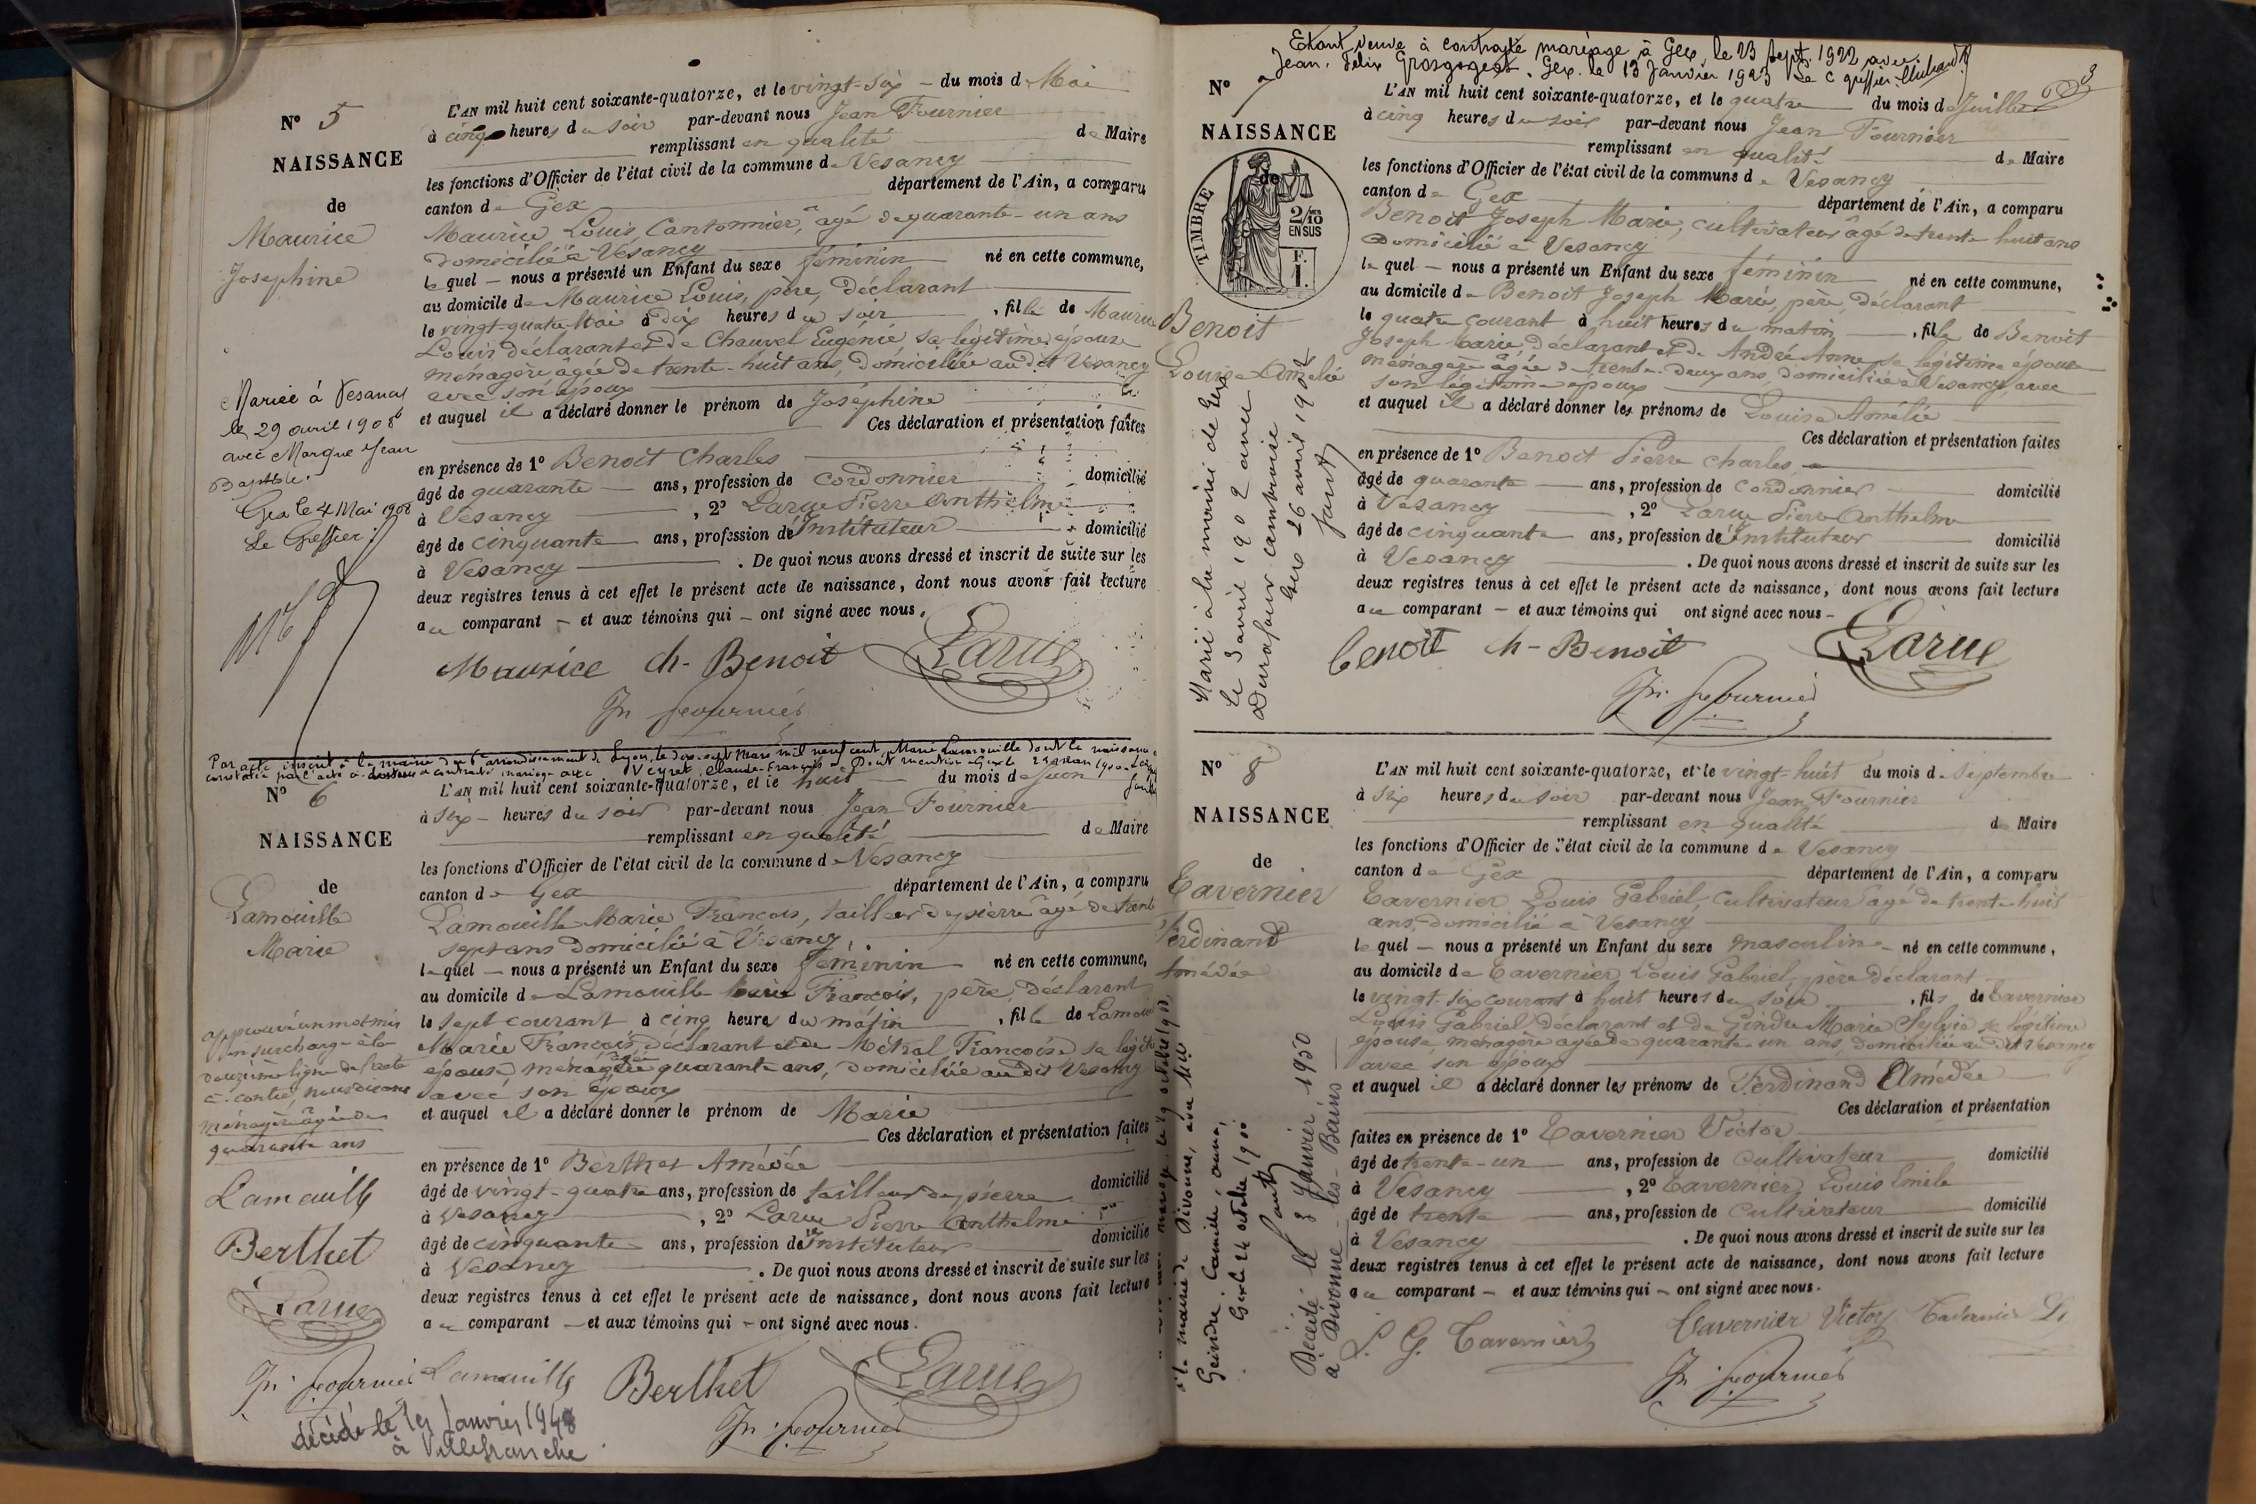 N° 5
NAISSANCE
de
Maurice
Josephine
L'AN mil huit cent soixante-quatorze, et le vingt-six du mois de Mai
à cinq heures du soir par-devant nous Jean Fournier
remplissant en qualité de Maire
les fonctions d'Officier de l'état civil de la commune de Vesancy
canton de Gex département de l'Ain, a comparu
Maurice Louis, Cantonnier, âgé de quarante-un ans
domicilié à Vésancy
le quel — nous a présenté un Enfant du sexe féminin né en cette commune,
au domicile de Maurice Louis, père, déclarant
le vingt-quatre Mai à dix heures du soir, fille de Maurice
Louis déclarant et de Chauvel Eugénie, sa légitime épouse
ménagère âgée de trente-huit ans, domiciliée au dit Vesancy
avec son époux
et auquel il a déclaré donner le prénom de Joséphine
Ces déclaration et présentation faites
en présence de 1° Benoit Charles
âgé de quarante ans, profession de cordonnier domicilié
à Vesancy, 2° Larue Pierre Anthelme
âgé de cinquante ans, profession d'Instituteur domicilié
à Vesancy. De quoi nous avons dressé et inscrit de suite sur les
deux registres tenus à cet effet le présent acte de naissance, dont nous avons fait lecture
au comparant — et aux témoins qui — ont signé avec nous.
Maurice ch-Benoit Larue
Jn fournier
Mariée à Vesancy
le 29 avril 1908
avec Marque Jean
Baptiste.
Gex le 4 Mai 1908
Le Greffier
Par acte inscrit à la mairie du 6e arrondissement de Lyon, le dix-sept Mars mil neuf cent, Marie Lamouille dont la naissance
constatée par l'acte ci-dessous a contracté mariage avec Veyret, Claude-François. Dont mention Gex le 24 Mars 1900
N° 6
NAISSANCE
de
Lamouille
Marie
L'AN mil huit cent soixante-quatorze, et le huit du mois de Juin
à six heures du soir par-devant nous Jean Fournier
remplissant en qualité de Maire
les fonctions d'Officier de l'état civil de la commune de Vesancy
canton de Gex département de l'Ain, a comparu
Lamouille Marie François, tailleur de pierre âgé de trente
sept ans domicilié à Vésancy
le quel — nous a présenté un Enfant du sexe féminin né en cette commune,
au domicile de Lamouille Marie François, père, déclarant
le sept courant à cinq heures du matin, fille de Lamouille
Marie François, déclarant et de Métral Françoise sa légitime
épouse ménagère âgée quarante ans, domiciliée au dit Vesancy
avec son époux
et auquel il a déclaré donner le prénom de Marie
Ces déclaration et présentation faites
en présence de 1° Berthet Amédée
âgé de vingt-quatre ans, profession de tailleur de pierre domicilié
à Vesancy, 2° Larue Pierre Anthelme
âgé de cinquante ans, profession d'Instituteur domicilié
à Vesancy. De quoi nous avons dressé et inscrit de suite sur les
deux registres tenus à cet effet le présent acte de naissance, dont nous avons fait lecture
au comparant — et aux témoins qui — ont signé avec nous.
approuvé un mot mis
en surcharge à la
douzième ligne de l'acte
ci-contre, nous disons
ménagère âgée de
quarante ans
Lamouille
Berthet
Larue
Jn fournier Lamouille Berthet Larue
Jn fournier
décédé le 1er Janvier 1948
à Villefranche
Etant veuve à contracté mariage à Gex, le 23 Sept. 1922 avec
Jean. Félix Grosgogeat. Gex. le 13 Janvier 1923 Le C greffier
N° 7
NAISSANCE
de
TIMBRE
2/10
EN SUS
F.
1.
Benoit
Louise Amélie
L'AN mil huit cent soixante-quatorze, et le quatre du mois de Juillet
à cinq heures du soir par-devant nous Jean Fournier
remplissant en qualité de Maire
les fonctions d'Officier de l'état civil de la commune de Vesancy
canton de Gex département de l'Ain, a comparu
Benoit Joseph Marie, cultivateur âgé de trente huit ans
domicilié à Vesancy
le quel — nous a présenté un Enfant du sexe féminin né en cette commune,
au domicile de Benoit Joseph Marie, père, déclarant
le quatre courant à huit heures du matin, fille de Benoit
Joseph Marie, déclarant et de André Anne sa légitime épouse
ménagère âgée de trente-deux ans, domiciliée à Vesancy, avec
son légitime époux
et auquel il a déclaré donner les prénoms de Louise Amélie
Ces déclaration et présentation faites
en présence de 1° Benoit Pierre Charles
âgé de quarante ans, profession de cordonnier domicilié
à Vesancy, 2° Larue Pierre Anthelme
âgé de cinquante ans, profession d'Instituteur domicilié
à Vesancy. De quoi nous avons dressé et inscrit de suite sur les
deux registres tenus à cet effet le présent acte de naissance, dont nous avons fait lecture
au comparant — et aux témoins qui ont signé avec nous —
Benoit ch-Benoit Larue
Jn fournier
Marié à la mairie de Gex
le 3 avril 1902 avec
Durafour
Gex 26 avril 1902
N° 8
NAISSANCE
de
Tavernier
Ferdinand
Amédée
L'AN mil huit cent soixante-quatorze, et le vingt-huit du mois de Septembre
à six heures du soir par-devant nous Jean Fournier
remplissant en qualité de Maire
les fonctions d'Officier de l'état civil de la commune de Vesancy
canton de Gex département de l'Ain, a comparu
Tavernier Louis Gabriel, cultivateur âgé de trente-huit
ans, domicilié à Vesancy
le quel — nous a présenté un Enfant du sexe masculin — né en cette commune,
au domicile de Tavernier Louis Gabriel, père déclarant
le vingt-six courant à huit heures du soir, fils de Tavernier
Louis Gabriel, déclarant et de Gindre Marie Sylvie sa légitime
épouse, ménagère âgée de quarante un ans, domiciliée au dit Vesancy
avec son époux
et auquel il a déclaré donner les prénoms de Ferdinand Amédée
Ces déclaration et présentation
faites en présence de 1° Tavernier Victor
âgé de trente-un ans, profession de cultivateur domicilié
à Vesancy, 2° Tavernier Louis Emile
âgé de trente ans, profession de cultivateur domicilié
à Vesancy. De quoi nous avons dressé et inscrit de suite sur les
deux registres tenus à cet effet le présent acte de naissance, dont nous avons fait lecture
au comparant — et aux témoins qui — ont signé avec nous.
L. G. Tavernier Tavernier Victor Tavernier L.
Jn fournier
à la mairie de Divonne, avec Mlle
Geindre Camille Anna,
Gex le 24 octobre 1900
Décédé le 3 Janvier 1950
à Divonne-les-Bains